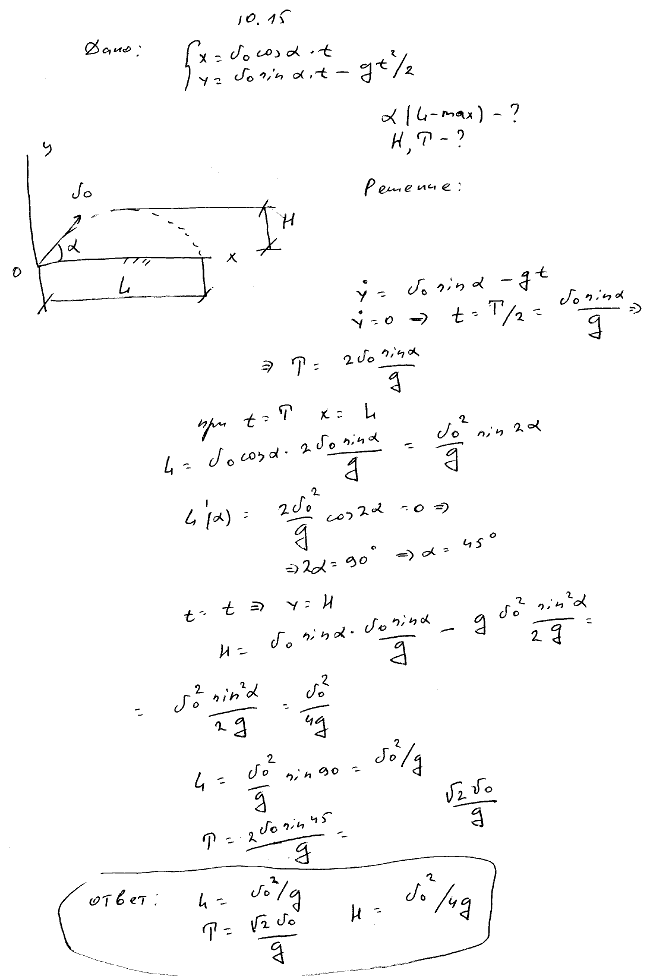 10.15
Дано: { x = v₀ cos α · t
y = v₀ sin α · t − gt²/2
α (L-max) - ?
H, T - ?
Решение:
y
v₀
α
H
O
x
L
ẏ = v₀ sin α − gt
ẏ = 0 ⇒ t = T/2 = v₀ sin α / g ⇒
⇒ T = 2v₀ sin α / g
при t = T x = L
L = v₀ cos α · 2v₀ sin α / g = v₀²/g sin 2α
L'(α) = 2v₀²/g cos 2α = 0 ⇒
⇒ 2α = 90° ⇒ α = 45°
t = t ⇒ y = H
H = v₀ sin α · v₀ sin α / g − g v₀² sin² α / 2g =
= v₀² sin² α / 2g = v₀² / 4g
L = v₀²/g sin 90 = v₀²/g
T = 2v₀ sin 45 / g = √2 v₀ / g
ответ: L = v₀²/g
T = √2 v₀ / g H = v₀²/4g